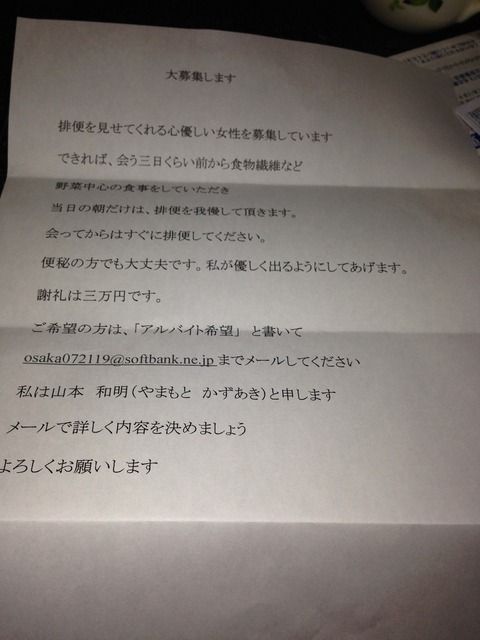 大募集します
排便を見せてくれる心優しい女性を募集しています
できれば、会う三日くらい前から食物繊維など
野菜中心の食事をしていただき
当日の朝だけは、排便を我慢して頂きます。
会ってからはすぐに排便してください。
便秘の方でも大丈夫です。私が優しく出るようにしてあげます。
謝礼は三万円です。
ご希望の方は、「アルバイト希望」 と書いて
osaka072119@softbank.ne.jp までメールしてください
私は山本 和明(やまもと かずあき)と申します
メールで詳しく内容を決めましょう
よろしくお願いします